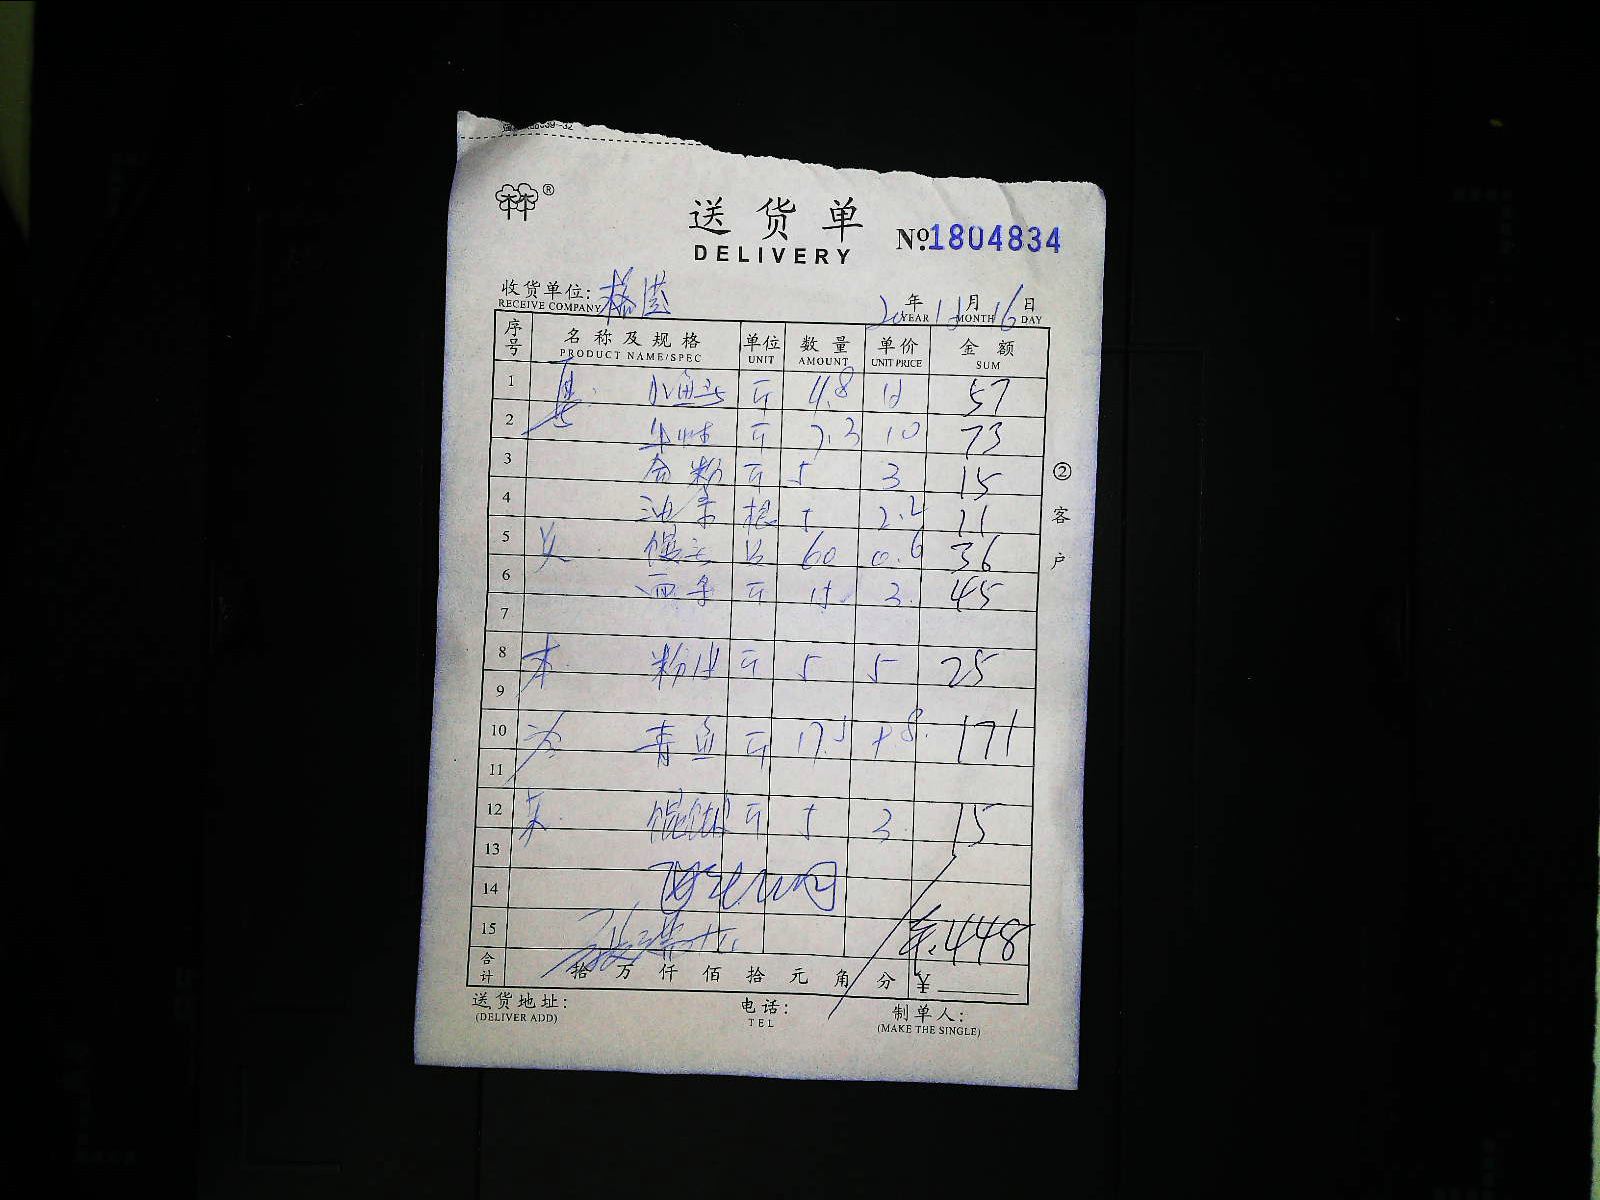 ®
送货单
DELIVERY
No.1804834
收货单位:
RECEIVE COMPANY
20 年 12 月 16 日
YEAR MONTH DAY
序号 名称及规格 单位 数量 单价 金额
PRODUCT NAME/SPEC UNIT AMOUNT UNIT PRICE SUM
1 小鱼头 斤 4.8 12 57
2 斤 7.3 10 73
3 粉 斤 5 3 15
4 油条 根 5 2.2 11
5 馒头 60 0.6 36
6 面条 斤 15 3 45
7
8 粉 斤 5 5 25
9
10 青鱼 斤 17.5 9.8 171
11
12 馄饨 斤 5 3 15
13
14
15 448
合计 拾 万 仟 佰 拾 元 角 分 ¥
送货地址: 电话: 制单人:
(DELIVER ADD) TEL (MAKE THE SINGLE)
②客户